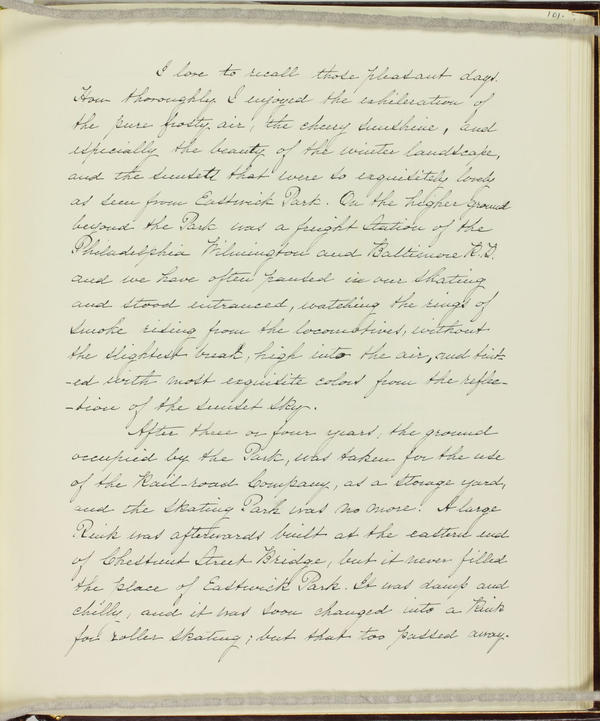 101.
I love to recall those pleasant days.
How thoroughly I enjoyed the exhileration of
the pure frosty air, the cheery sunshine, and
especially the beauty of the winter landscape,
and the sunsets that were so exquisitely lovely
as seen from Eastwick Park. On the higher ground
beyond the Park was a freight station of the
Philadelphia Wilmington and Baltimore R.R.
and we have often paused in our skating
and stood entranced, watching the rings of
smoke rising from the locomotives, without
the slightest break, high into the air, and tint-
-ed with most exquisite colors from the reflec-
-tion of the sunset sky.
After three or four years, the ground
occupied by the Park, was taken for the use
of the Rail-road Company, as a storage yard,
and the Skating Park was no more! A large
Rink was afterwards built at the eastern end
of Chestnut Street Bridge, but it never filled
the place of Eastwick Park. It was damp and
chilly, and it was soon changed into a Rink
for roller skating; but that too passed away.